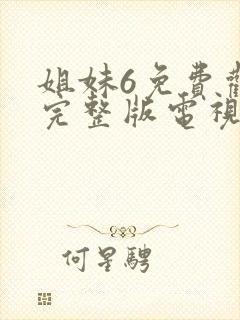 姐妹6免費觀
完整版電視
何星騁